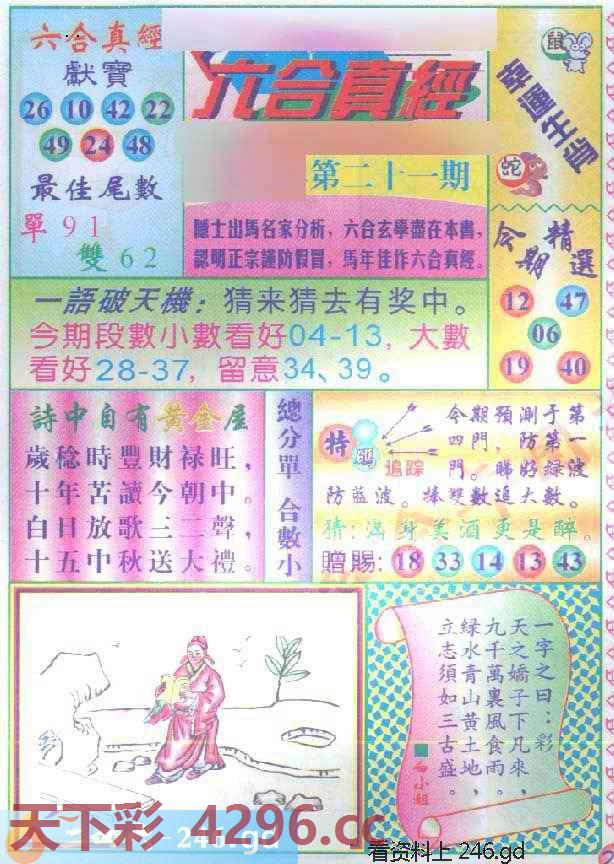 六合真經
獻寶
26 10 42 22
49 24 48
最佳尾數
單 9 1
雙 6 2
六合真經
第二十一期
隱士出馬名家分析，六合玄學盡在本書，
認明正宗謹防假冒，馬年佳作六合真經。
鼠
幸運生肖
蛇
今期精選
12 47
06
19 40
一語破天機：猜来猜去有奖中。
今期段數小數看好04-13，大數
看好28-37，留意34、39。
詩中自有黃金屋
歲稔時豐財禄旺，
十年苦讀今朝中。
白日放歌三二聲，
十五中秋送大禮。
總分單 合數小
特
追踪
今期預測于第
四門，防第一
門。睇好綠波
防蓝波。捧雙數追大數。
猜：滿身美酒更是醉。
贈賜：18 33 14 13 43
一字之曰：彩
天之嬌子下凡来，
九千萬裏風食雨。
緑水青山黄土地，
立志須如三古盛。
天下彩 4296.cc
246.gd
看资料上 246.gd